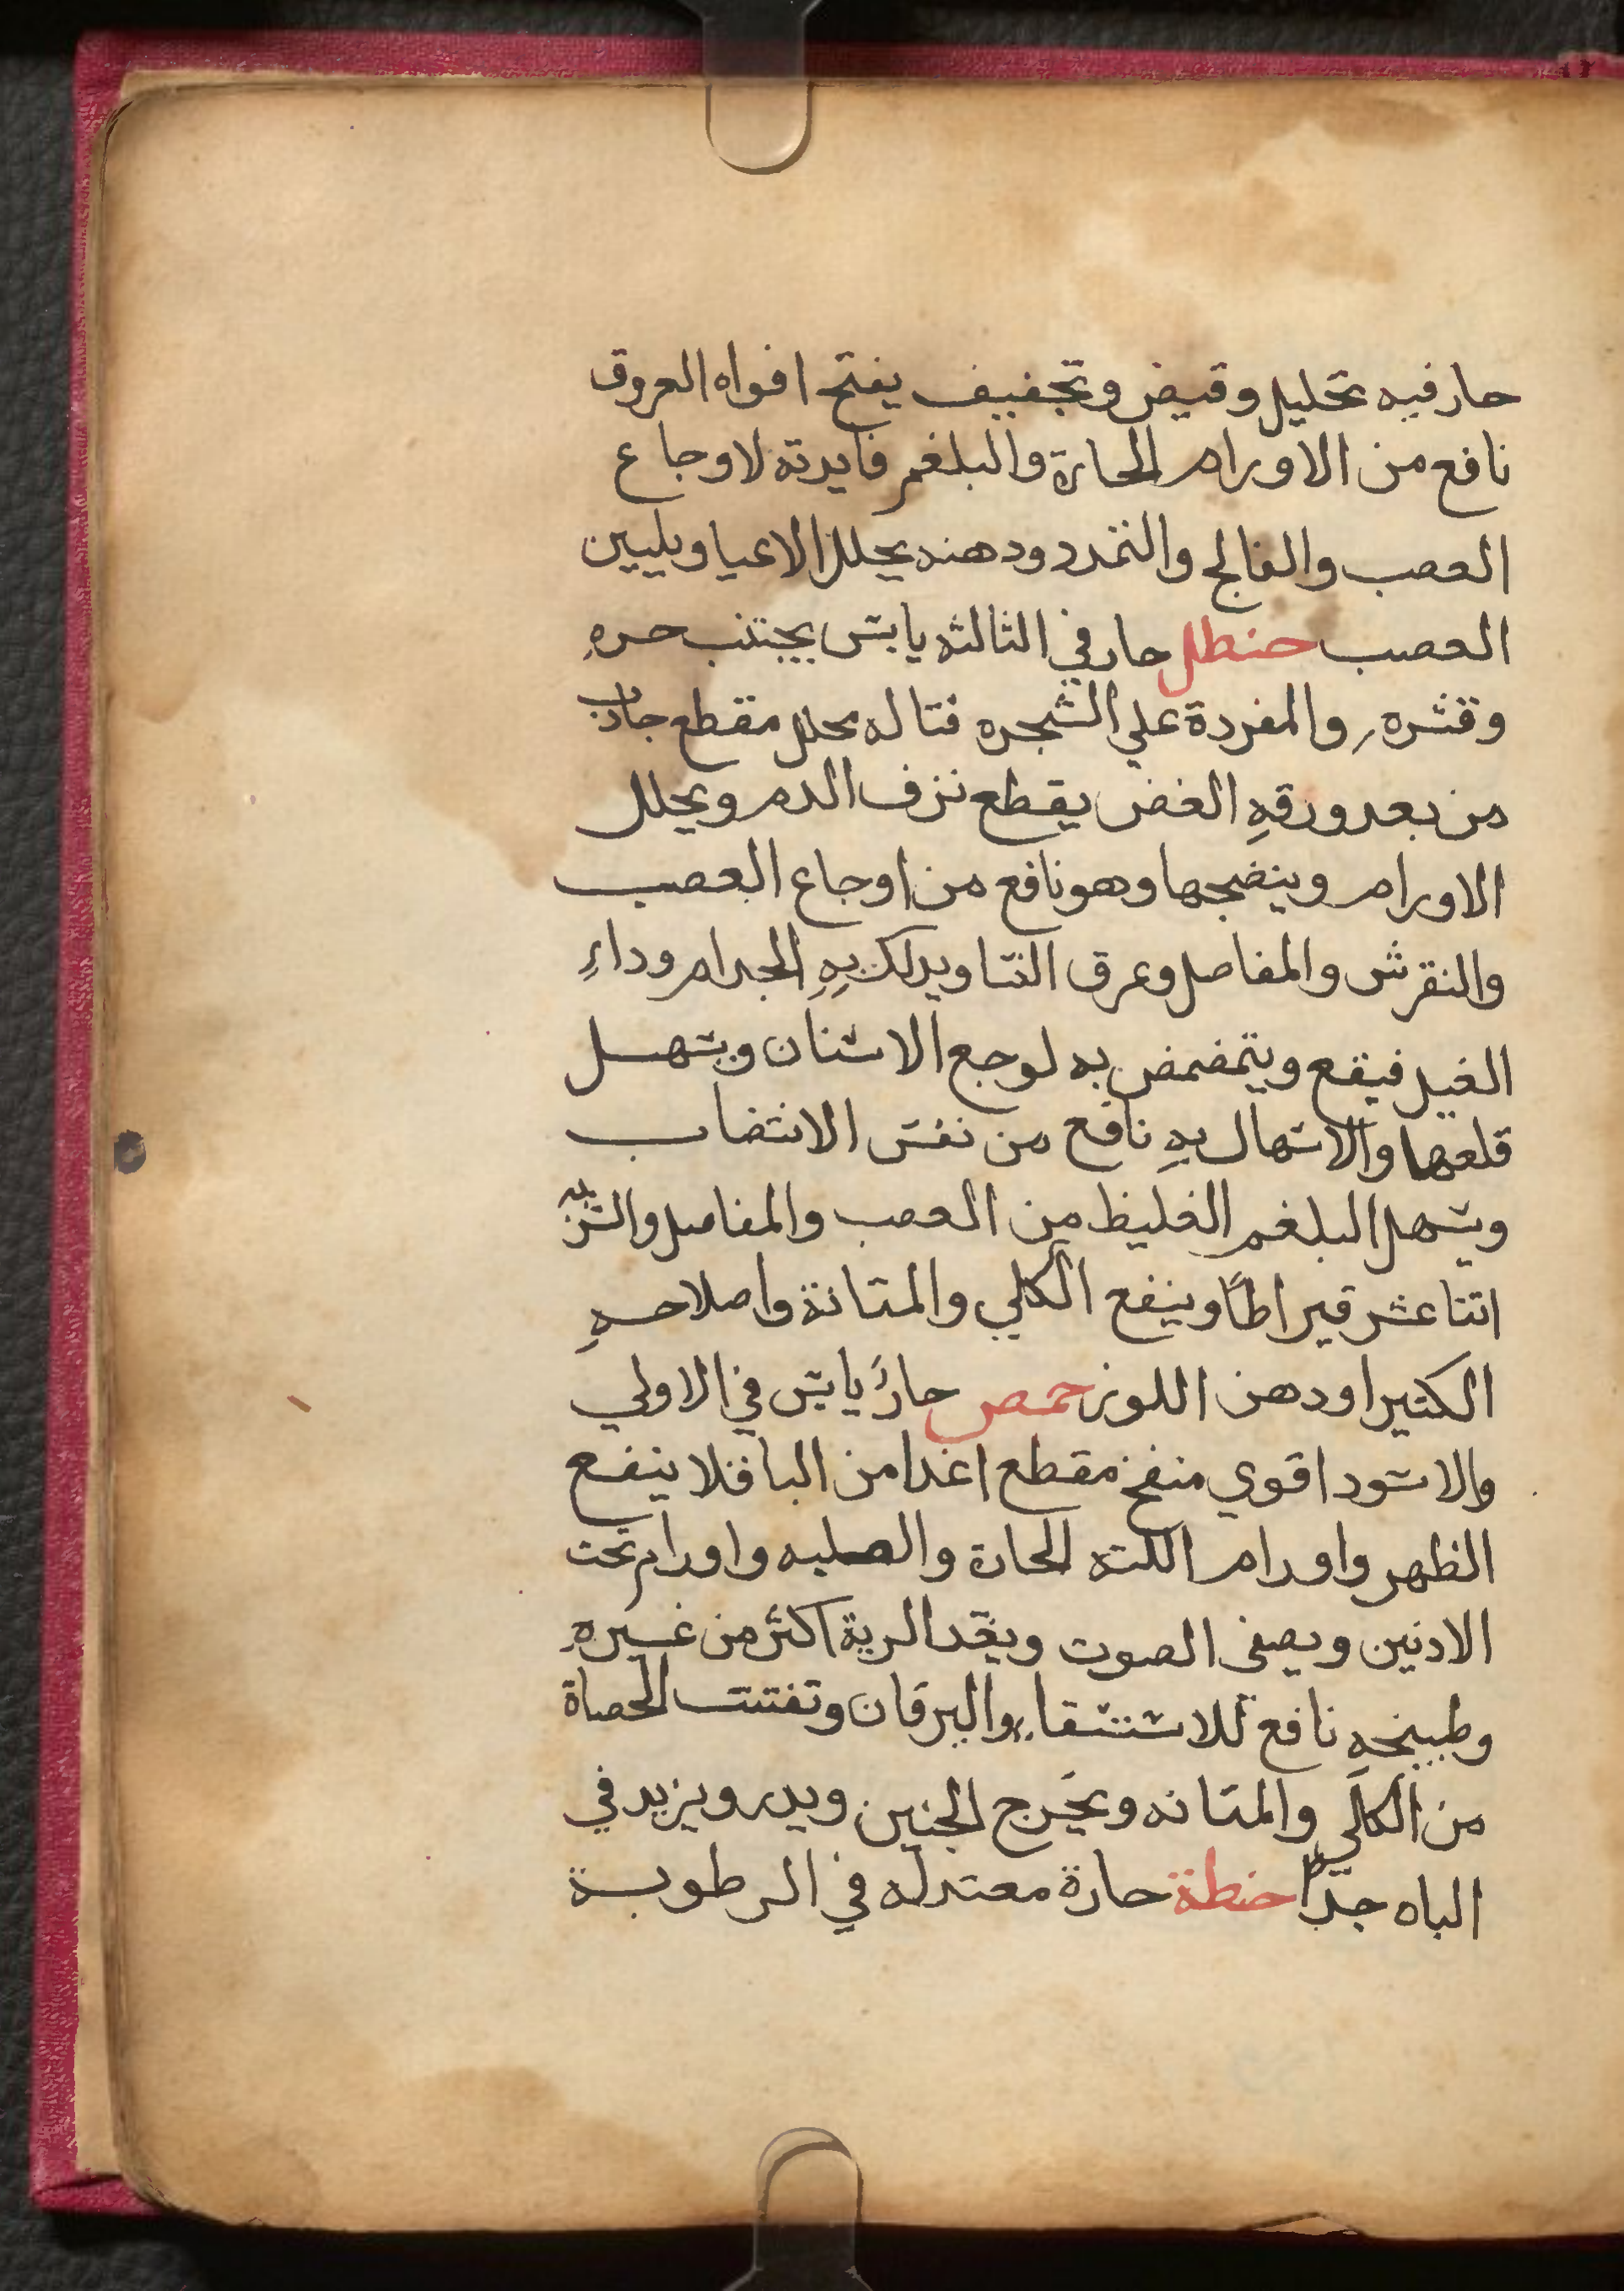 حار فيه تحليل وقبض وتجفيف يفتح افواه العروق
نافع من الاورام الحارة والبلغم فايدته لاوجاع
العصب والفالج والتمدد ودهنه يحلل الاعيا ويليين
العصب حنطل حار في الثالثه يابس يجتنب حره
وقشره والمفردة علي الشجره قتاله محلل مقطع جاذب
من بعد ورقه الغض يقطع نزف الدم ويحلل
الاورام وينضجها وهو نافع من اوجاع العصب
والنقرس والمفاصل وعرق النسا ويدلك به الجدام وداء
الفيل فيقع ويتمضمض به لوجع الاسنان ويسهل
قلعها والاسهال به نافع من نفس الانتصاب
ويسهل البلغم الغليظ من العصب والمفاصل والشربه
اتنا عشر قيراطًا وينفع الكلي والمتانة واصلاحه
الكتيرا ودهن اللوز حمص حارُ يابس في الاولي
والاسود اقوي منفخ مقطع اغدا من الباقلا ينفع
الظهر واورام اللته الحارة والصلبه واورام تحت
الادنين ويصفى الصوت ويغد الرية اكثر من غيره
وطبيخه نافع للاستسقاء واليرقان وتفتت الحصاة
من الكلي والمتانه ويخرج الجنين ويدر ويزيد في
الباه جدًا حنطة حارة معتدله في الرطوبة